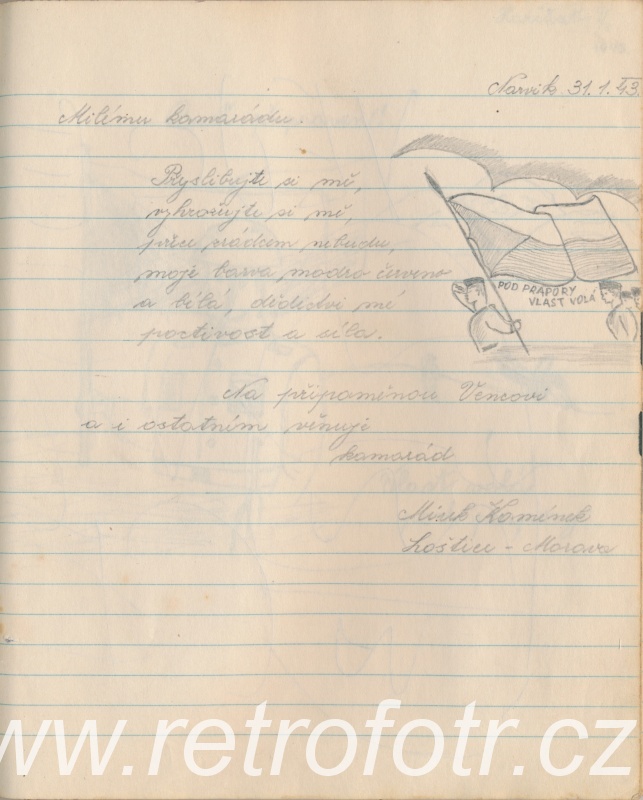 Narvik 31. 1. 43.
Milému kamarádu.
Přyslibujte si mě,
vyhrožujte si mě,
přece zrádcem nebudu,
moje barva modro červeno
a bílá, dědictvi mé
poctivost a síla.
POD PRAPORY
VLAST VOLÁ
Na připoménou Vencovi
a i ostatním věnuje
kamarád
Mirek Kamínek
Loštice - Morava
www.retrofotr.cz